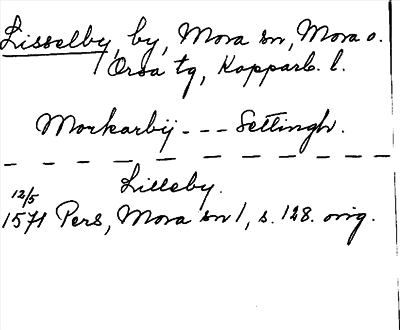 Lisselby, by, Mora sn, Mora o.
Orsa tg, Kopparb. l.
Morkarbÿ - - - Settingh.
Lilleby.
12/5
1571 Pers, Mora sn 1, s. 128. orig.